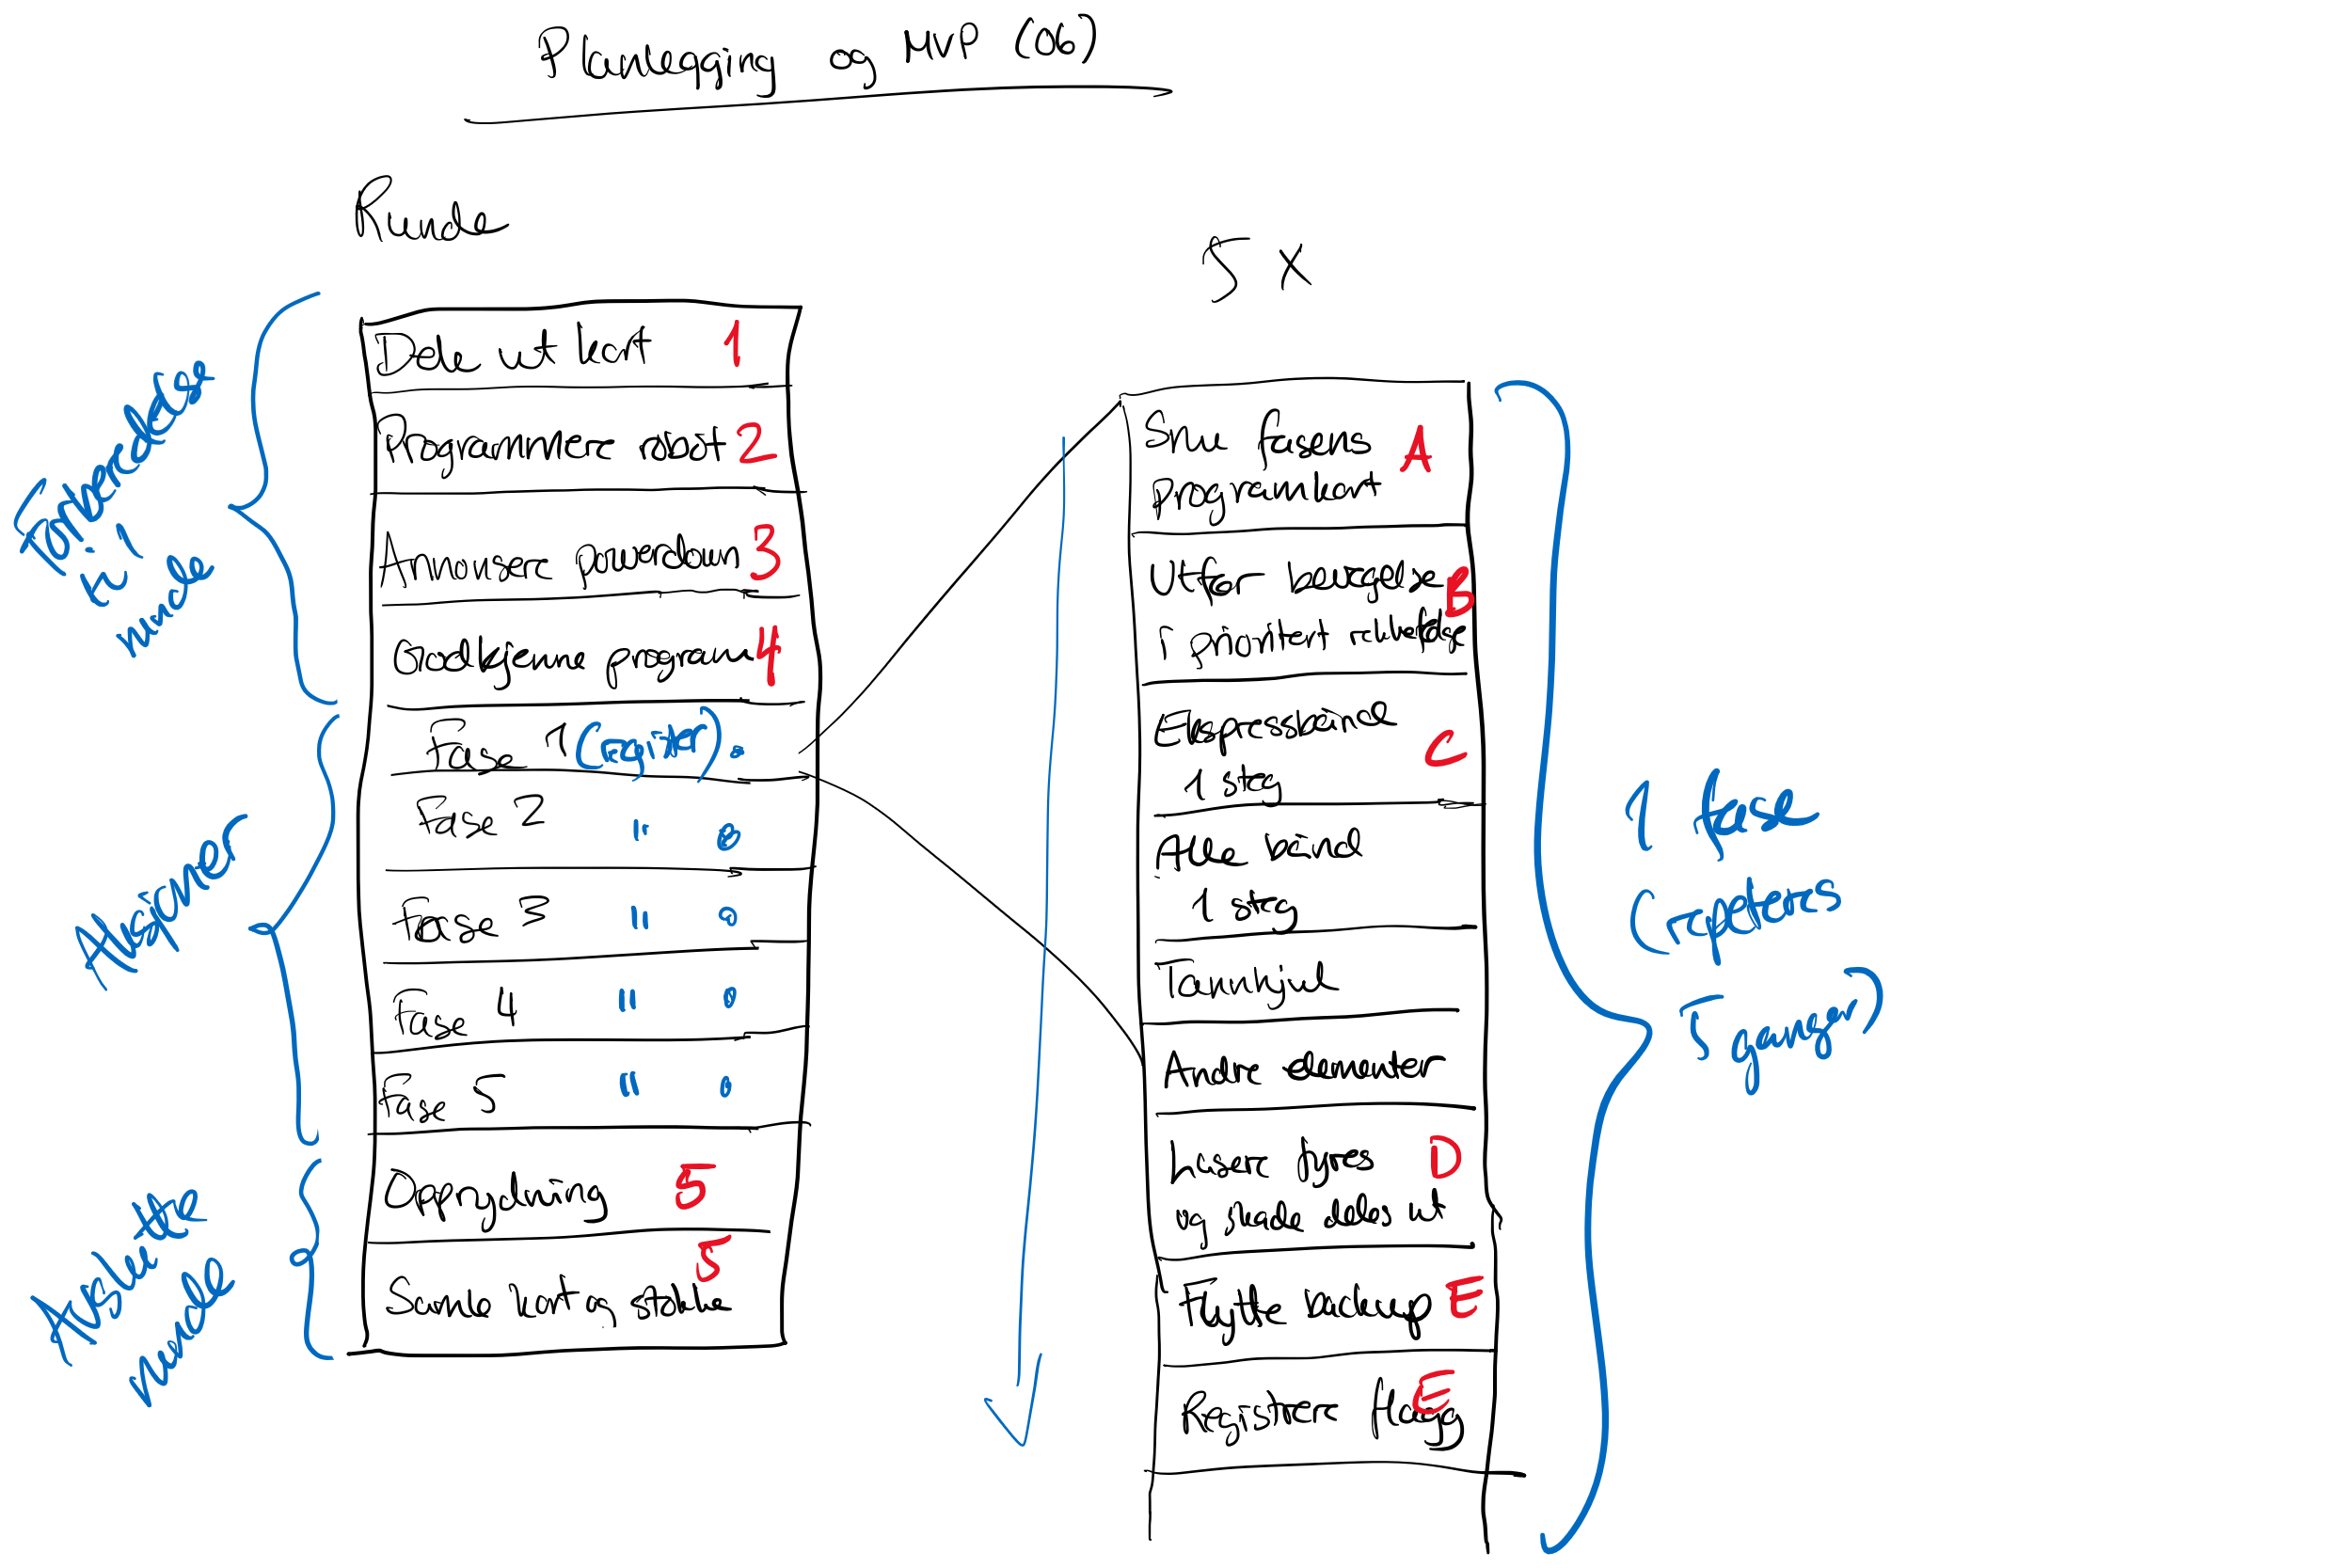 Planlegging og MVP (06)
Runde
5 x
Forberedelser
til
runde
Dele ut kort 1
Programmer robot 2
Annonser powerdown 3
Godkjenne program 4
Aksjoner
Fase 1 (Register).
Fase 2 " 0
Fase 3 " 0
Fase 4 " 0
Fase 5 " 0
Avslutte
runde
Opprydding 5
Samle kort og stokke 5
Snu fasens A
programkort
Utfør bevegelse B
i prioritert rekkefølge
Ekspressbånd C
1 steg
Alle bånd
1 steg
Tannhjul
Andre elementer
Laser fyres D
og skade deles ut
Flytte backup E
Registrere flagg E
1 fase
(repeteres
5 ganger)